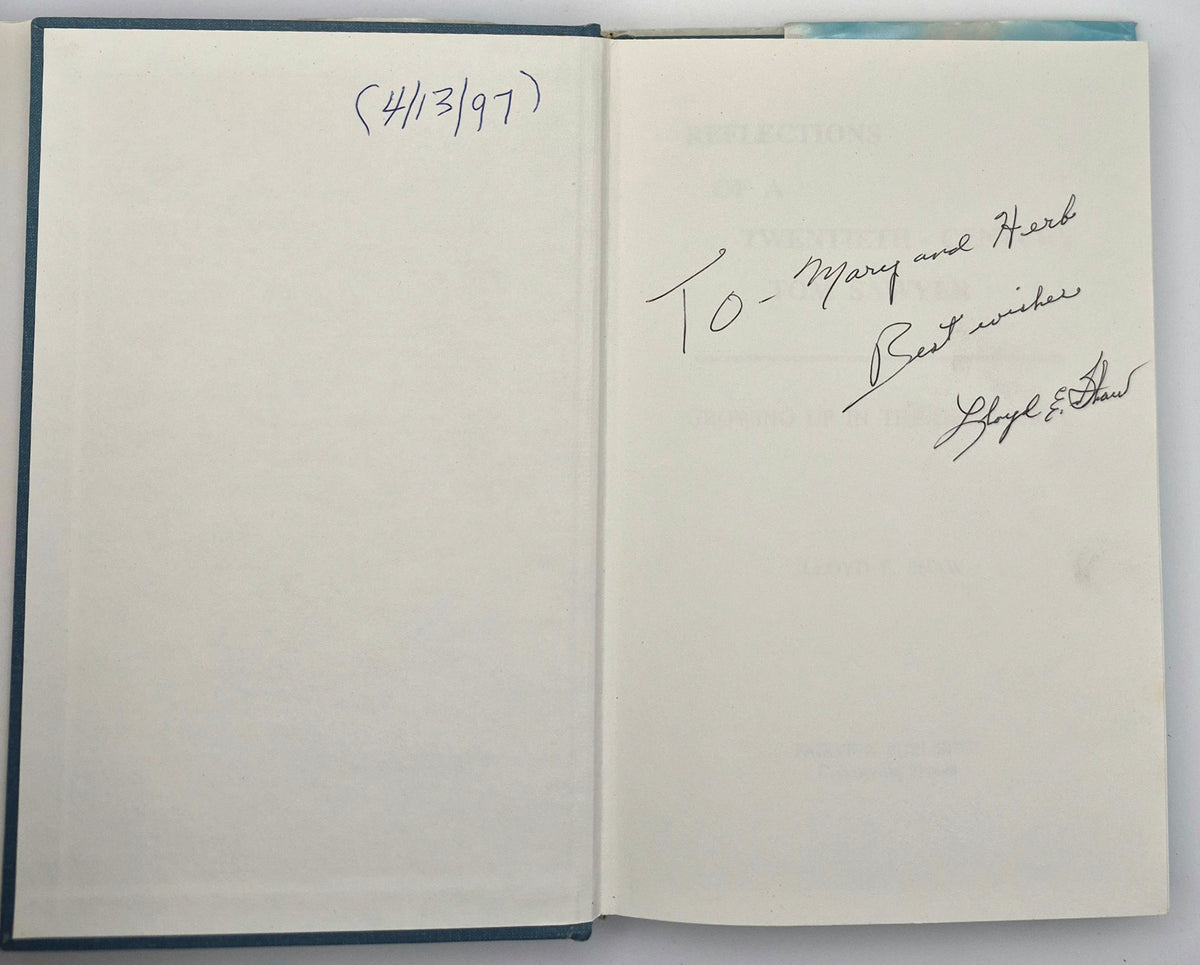 (4/13/97)
To - Mary and Herb
Best wishes
Lloyd E. Shaw
REFLECTIONS
OF A
TWENTIETH - CENTURY
TOM SAWYER
GROWING UP IN THE
LLOYD E. SHAW